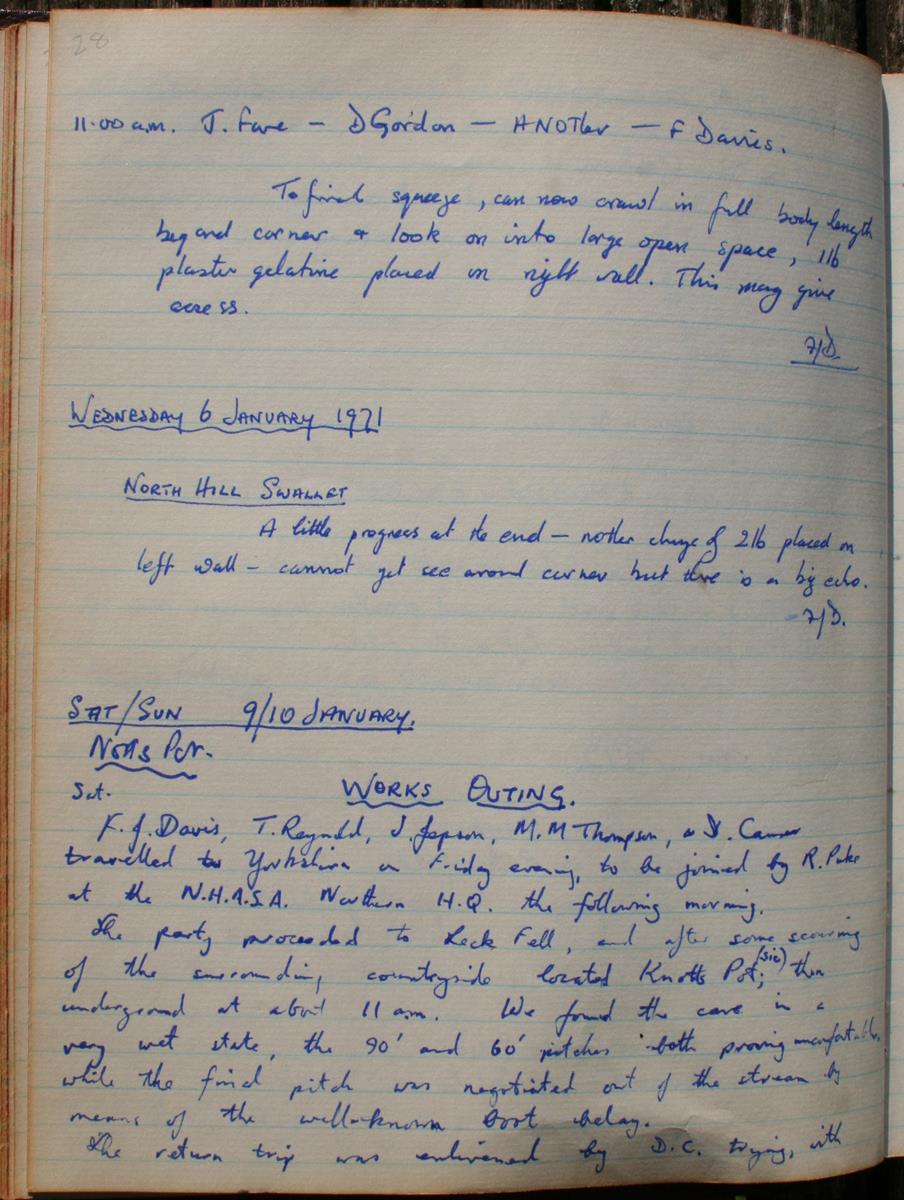 28
11.00 a.m. J. Fare - D Gordon - ANOTher - F Davies.
To final squeeze, can now crawl in full body length
beyond corner & look on into large open space, 1lb
plaster gelatine placed on right wall. This may give
access.
F/D.
WEDNESDAY 6 JANUARY 1971
NORTH HILL SWALLET
A little progress at the end - nother charge of 2lb placed on
left wall - cannot yet see around corner but there is a big echo.
- F/D.
SAT/SUN 9/10 JANUARY.
NOTTS POT.
Sat.
WORKS OUTING.
F. J. Davis, T. Reynold, J. Jepson, M. M Thompson, & D. Causer
travelled to Yorkshire on Friday evening, to be joined by R. Pike
at the N.H.A.S.A. Northern H.Q. the following morning.
The party proceeded to Leck Fell, and after some scouring
of the surrounding countryside located Knotts Pot; (sic) then
underground at about 11 a.m. We found the cave in a
very wet state, the 90' and 60' pitches both proving uncomfortable,
while the final pitch was negotiated out of the stream by
means of the well-known boot belay.
The return trip was enlivened by D.C. trying, with